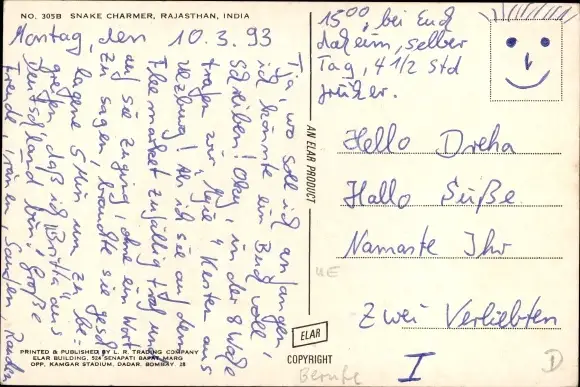 NO. 305B SNAKE CHARMER, RAJASTHAN, INDIA
Montag, den 10.3.93
15⁰⁰, bei Euch
daheim, selber
Tag, 4 1/2 Std
früher.
Tja, wo soll ich anfangen,
ich könnte ein Buch voll
schreiben! Okay, in der
trafen wir, aus
Als ich sie auf dem
Fleemarket zufällig traf und
auf sie zuging, ohne ein Wort
zu sagen, brauchte sie gesch
lagene 5 Min um zu be-
greifen, daß ich Britta aus
Deutschland bin! Große
Freude, Tränen, Saufen,
AN ELAR PRODUCT
Hello Dreha
Hallo Süße
Namaste Ihr
Zwei Verliebten
I
ELAR
COPYRIGHT
PRINTED & PUBLISHED BY L. R. TRADING COMPANY
ELAR BUILDING, 524 SENAPATI BAPAT MARG
OPP. KAMGAR STADIUM, DADAR, BOMBAY 28
Berufe
D